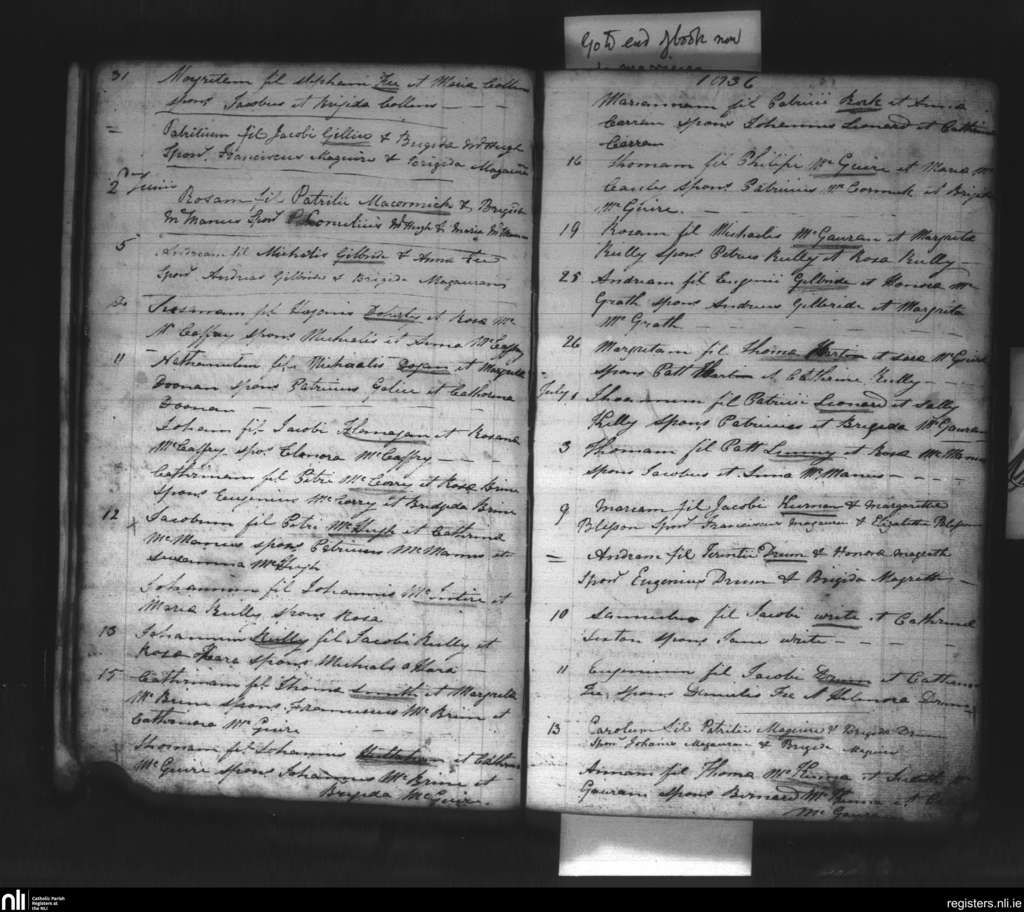 Go to end of book now
31 Margretam fil Stephani Fee et Maria Collum
spons Jacobus et Brigida Collens
= Patritium fil Jacobi Gillice & Brigida McHugh
Spons. Franciscus Maguire & Brigida Magauran
2 Junii
Rosam fil Patritii Macormick & Brigida
McManus Spons Cornelius McHugh & Maria McManus
5 Andream fil Michalis Gilbride & Anna Fee
Spons Andreas Gilbride & Brigida Magauran
fil Eugenii Doherty et Rosa Mc
Mc Caffry spons Michaelis et Anna McCaffry
11 fil Michaelis Dolan et Margreta
Doonan spons Patricius et Catherina
Doonan
Johann fil Jacobi Flanagan et Rosana
McCaffry, spos Elonora McCaffry
Cathrinam fil Petri McCorry et Rosa Brine
Spons Eugenius McCorry et Bridgida Brine
12 Jacobum fil Petri McHugh et Cathrina
McManus spons Patricius McManus et
Susanna McHugh
Johannum fil Johannis McIntire et
Maria Reilly spons Rosa
13 Johannum Reilly fil Jacobi Reilly et
Rosa Hara spons Michiali o Hara
15 Cathrinam fil Thoma Smith et Margreta
McBrien spons Franciscus McBrien et
Catharina McGuire
Thomam fil Johannis et Cathrina
McGuire spons Johannus McBrine et
Brigida McGuire
1836
Mariannam fil Patricii Rork et Anna
Carran spons Johannus Leonard et Cathrina
Carran
16 Thomam fil Philipi McGuire et Maria Mc
spons Patricius McCormick et Brigida
McGuire.
19 Rosam fil Michaelis McGauran et Margreta
Reilly spons Petrus Reilly et Rosa Reilly
25 Andream fil Eugenii Gilbride et Honora Mc
Grath spons Andreus Gilbride et Margreta
McGrath
26 Margretam fil Thoma Martin et Sara McGuire
spons Patt Martin et Cathrine Reilly
July 1 Shoannum fil Patricii Leonard et Sally
Kelly spons Patricius et Brigida McGauran
3 Thomam fil Patt Lunny et Rosa McManus
spons Jacobus et Anna McManus
9 Mariam fil Jacobi Kurnan & Margaretta
Spons Franciscus Magauran & Elizabetha
= Andream fil Terintii Drum & Honora Magrath
Spons Eugenius Drum & Brigida Magrath
10 fil Jacobi write et Cathrina
Sexton spons Jane write
11 Eugenium fil Jacobi Drum et Catharina
Fee, spons Fee et Helenora Drum
13 Carolum fil Patritii Maguire & Brigida Drum
Spons Johanis Magauran & Brigida Maguire
Annam fil Thoma McKenna et Judith Mc
Gauran spons Bernard McKenna et
McGauran
nli Catholic Parish
Registers at
the NLI
registers.nli.ie